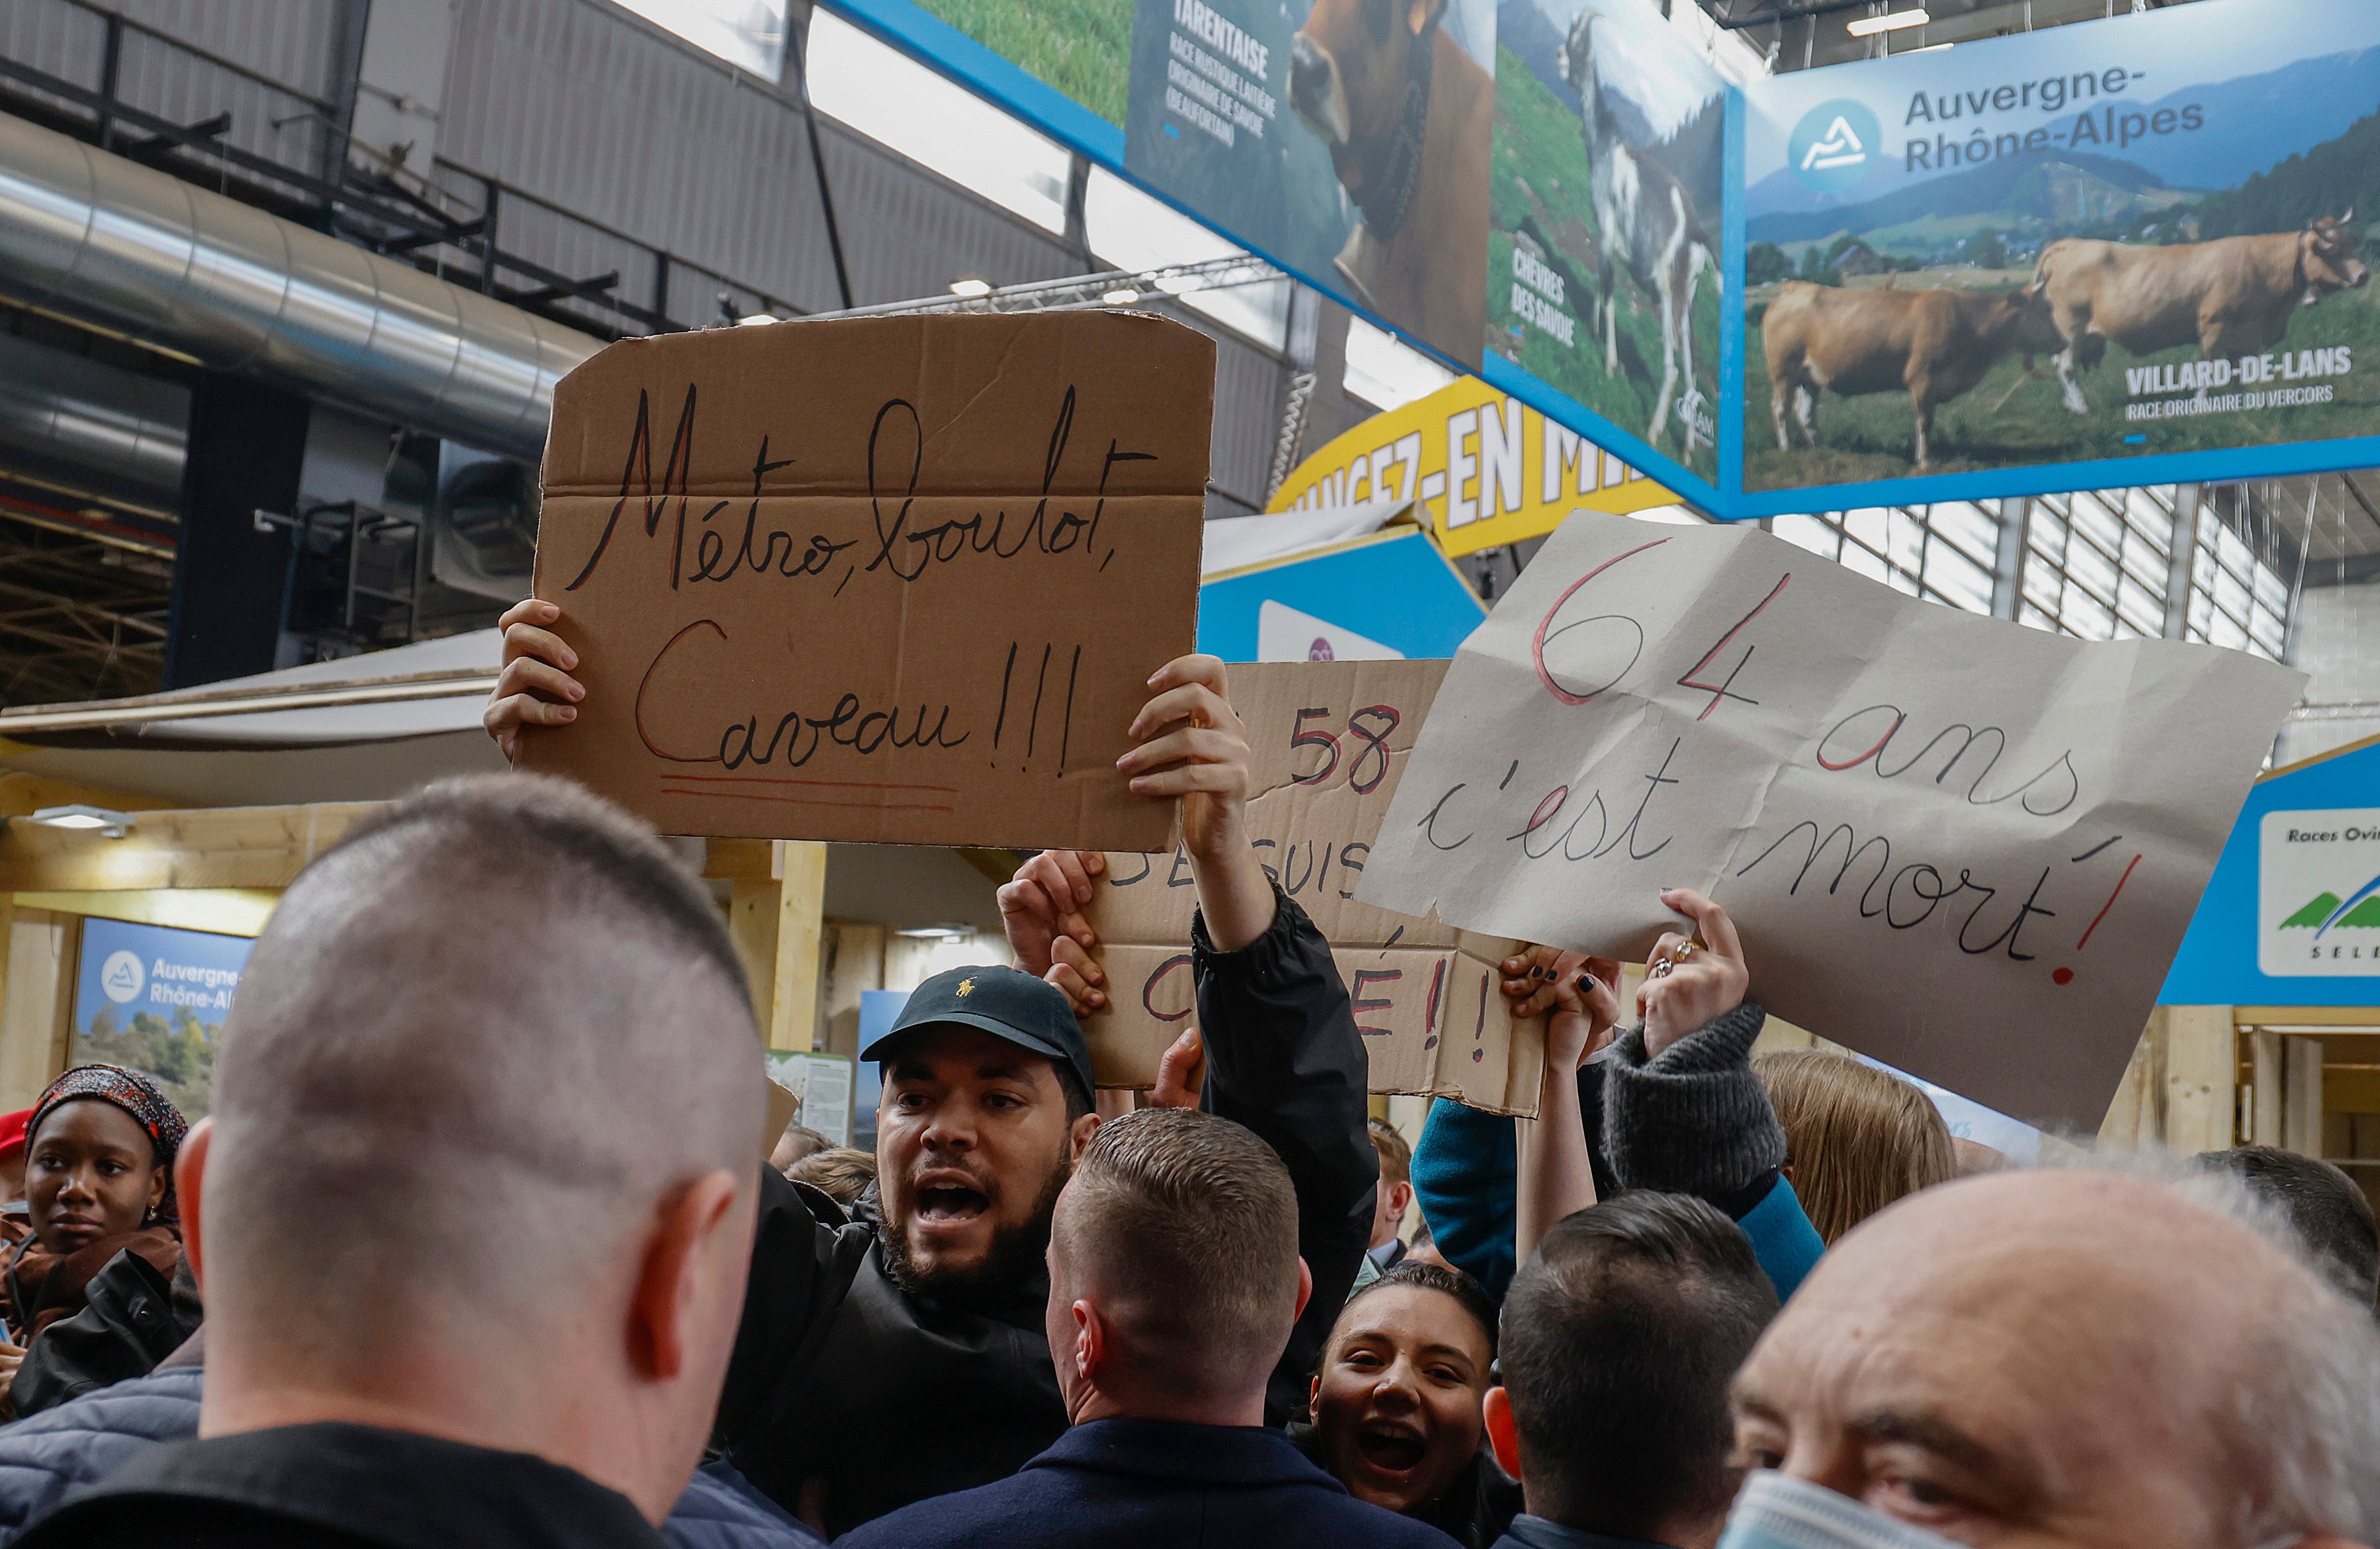 TARENTAISE
RACE RUSTIQUE LAITIÈRE
ORIGINAIRE DE SAVOIE
(BEAUFORTAIN)
CHÈVRES
DES SAVOIE
Auvergne-
Rhône-Alpes
VILLARD-DE-LANS
RACE ORIGINAIRE DU VERCORS
-EN
Métro, boulot,
Caveau !!!
58
JE SUIS
64 ans
c'est mort !
Races
Auvergne-